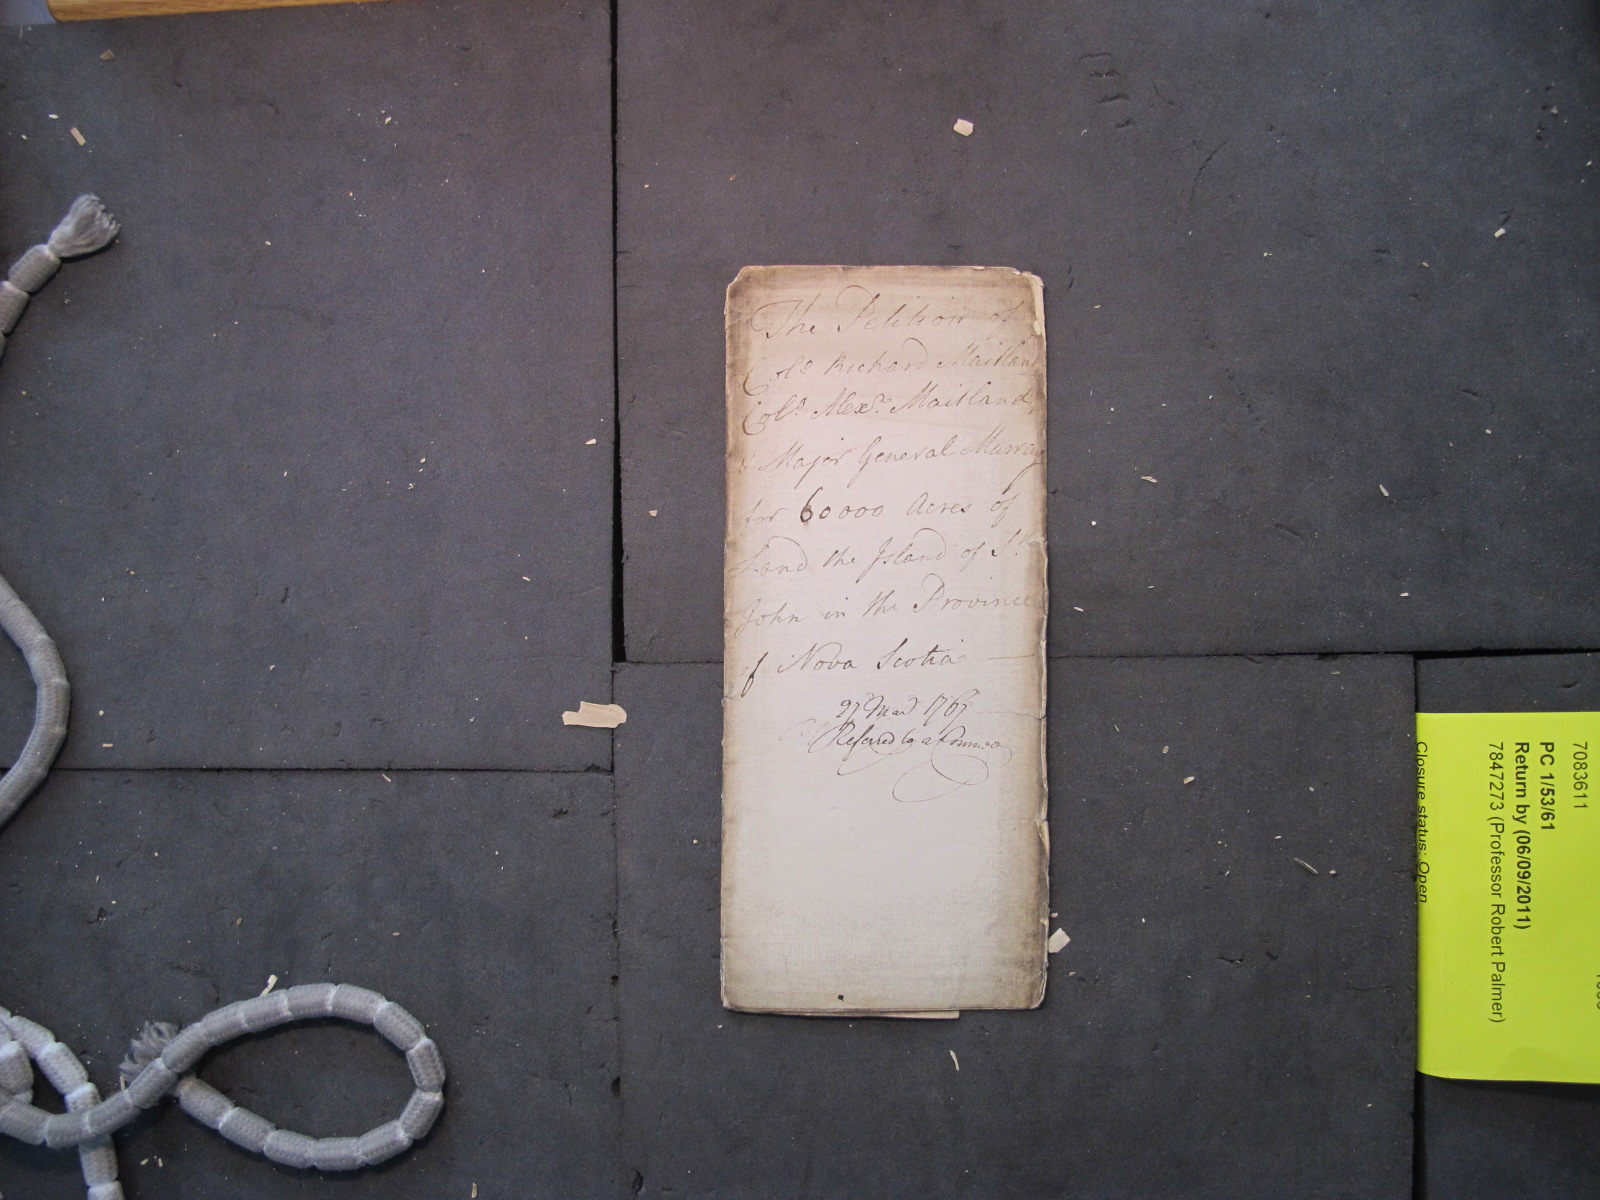 The Petition of
Colo. Richard Maitland
Colo. Alexr. Maitland,
& Major General Murray
for 60000 Acres of
Land the Island of St.
John in the Province
of Nova Scotia
27 Mar 1767
Referred to a Commee
7083611
PC 1/53/61
Return by (06/09/2011)
7847273 (Professor Robert Palmer)
Closure status: Open